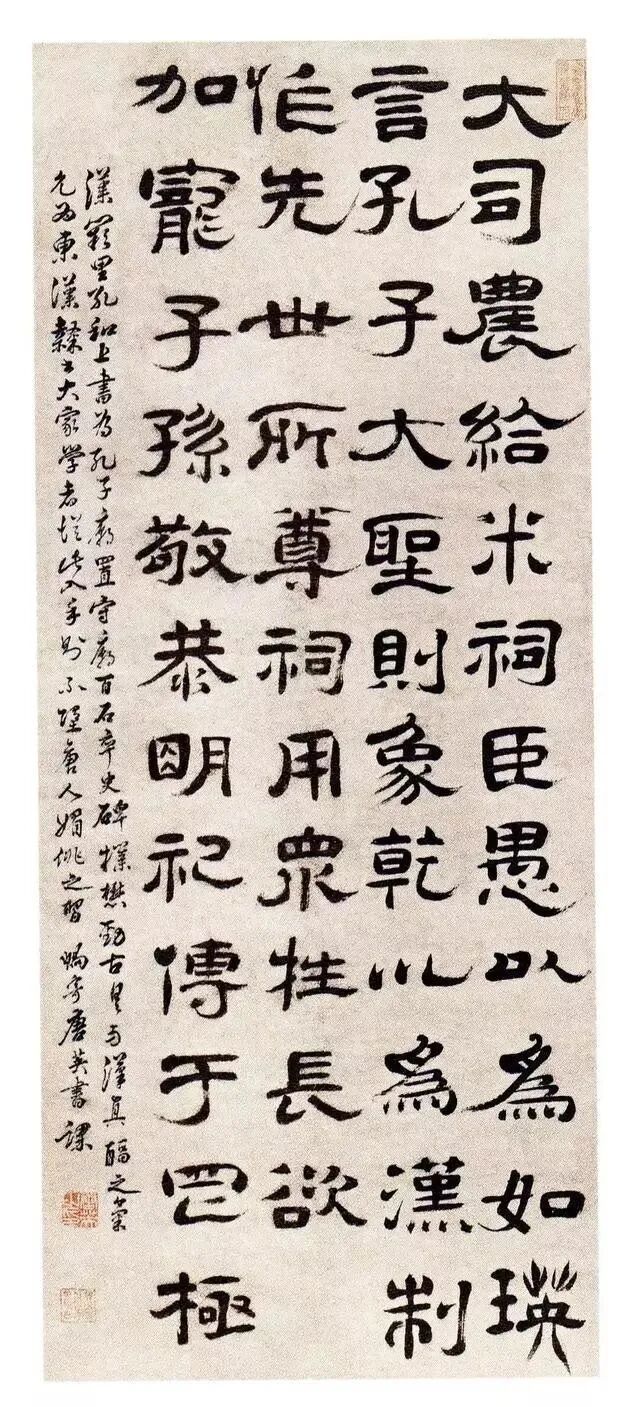 大司農給米祠臣愚以爲如瑛
言孔子大聖則象乾川爲漢制
作先世所尊祠用眾牲長欲
加寵子孫敬恭明祀傳于罔極
漢闕里孔和上書為孔子廟置守廟百石卒史碑樸楙勁古與漢真之氣
允為東漢隸書大家學者從此入手則不墮唐人媚佻之習 蝸寄唐英書課